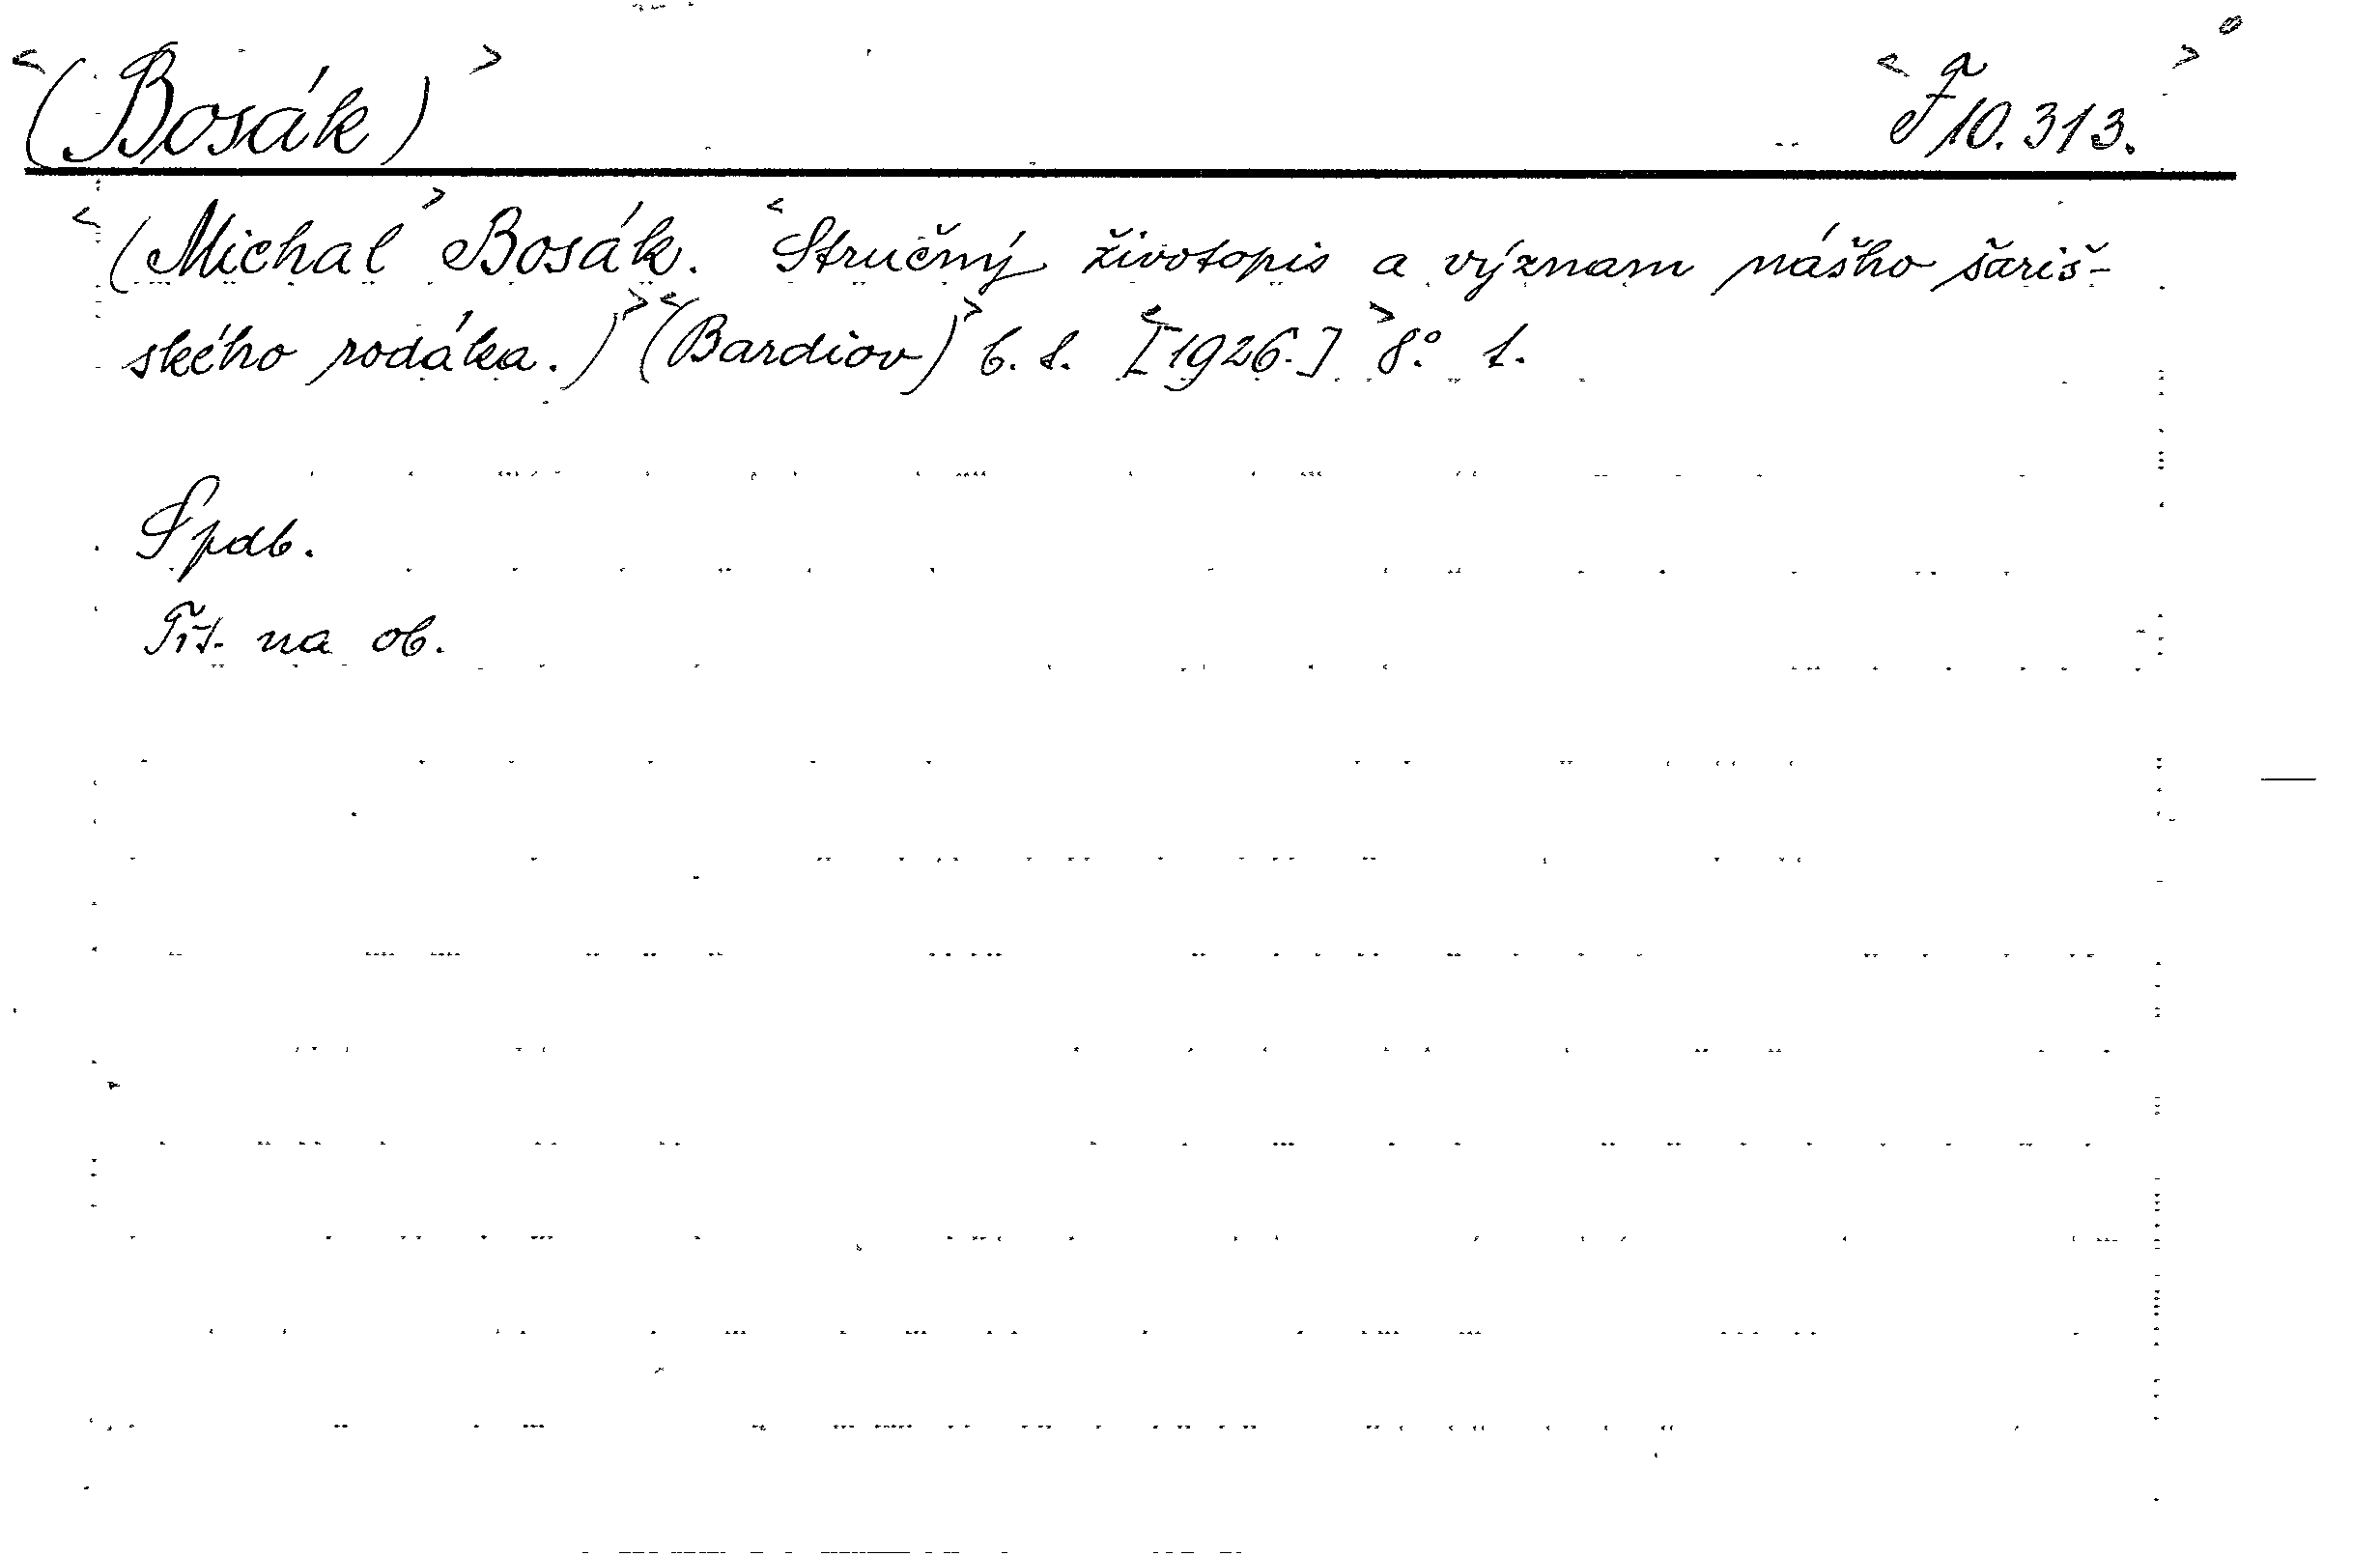 (Bosák) F 10.313.
(Michal Bosák. Stručný životopis a význam nášho šariš-
ského rodáka.) (Bardiov) b. t. [1926.] 8° 1.
Spdb.
Tit. na ob.